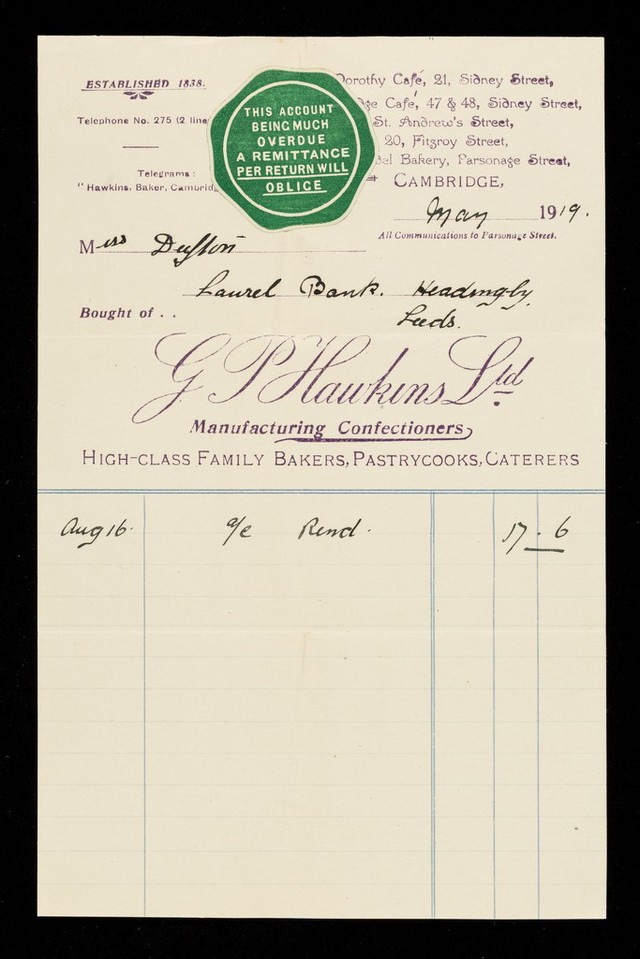 ESTABLISHED 1838.
Telephone No. 275 (2 line
Telegrams:
"Hawkins, Baker, Cambridg
THIS ACCOUNT
BEING MUCH
OVERDUE
A REMITTANCE
PER RETURN WILL
OBLIGE
Dorothy Café, 21, Sidney Street,
ge Café, 47 & 48, Sidney Street,
St. Andrew's Street,
20, Fitzroy Street,
del Bakery, Parsonage Street,
CAMBRIDGE,
May 1919.
All Communications to Parsonage Street.
Miss
Laurel Bank. Headingly.
Leeds.
Bought of . .
G P Hawkins Ltd
Manufacturing Confectioners,
HIGH-CLASS FAMILY BAKERS, PASTRYCOOKS, CATERERS
Aug 16. a/c Rend. 17 . 6